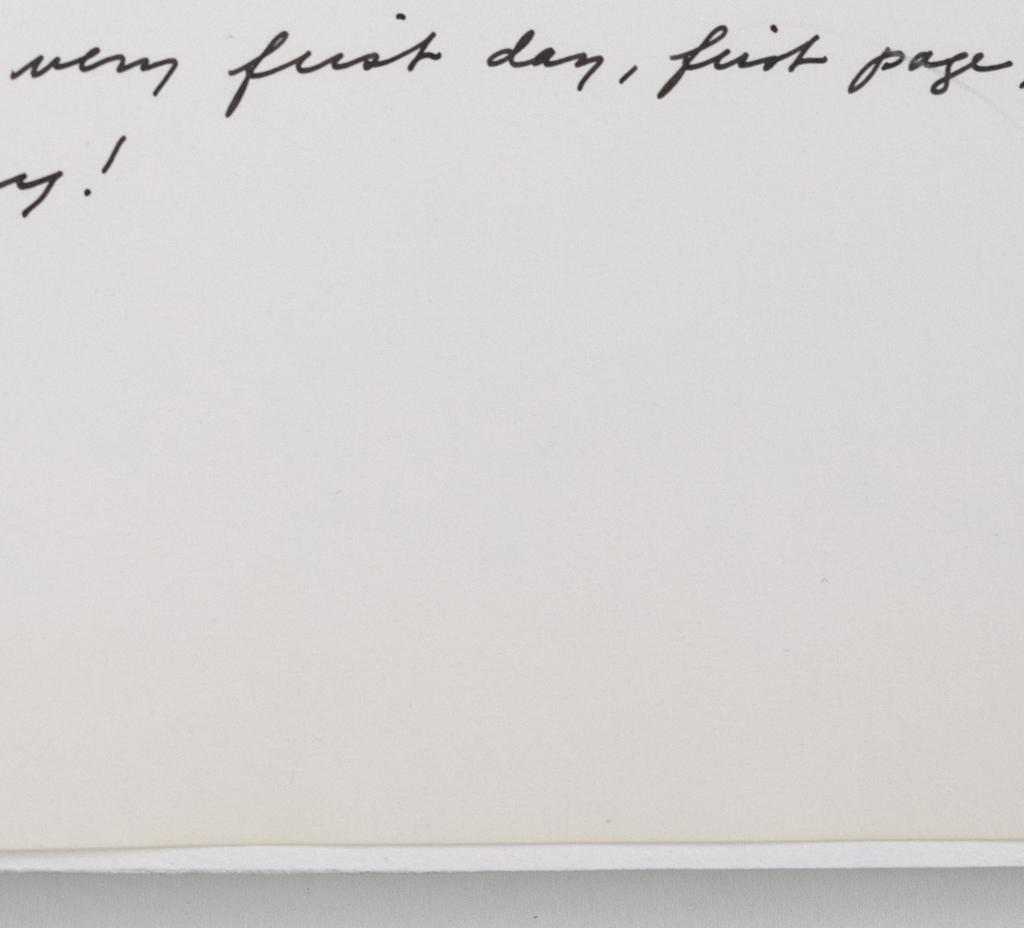 very first day, first page,
y!